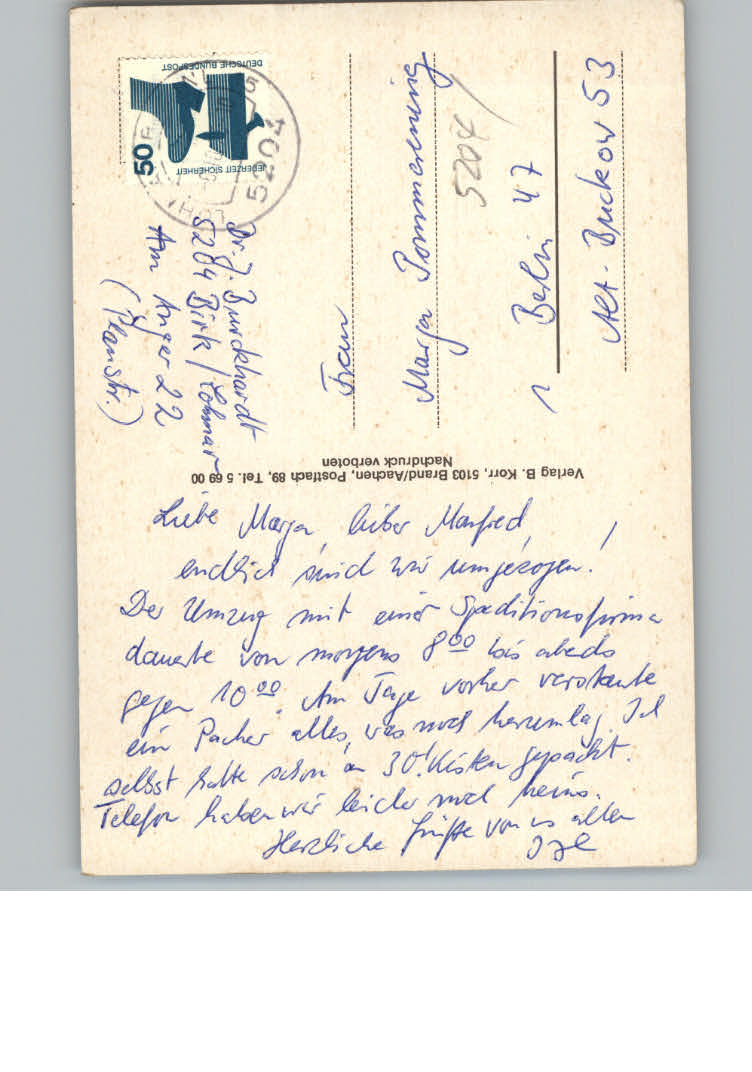 DEUTSCHE BUNDESPOST
50
JEDERZEIT SICHERHEIT
5204
LOHMAR
Dr. J. Burckhardt
5204 Birk / Lohmar
Am Anger 22
(Planstr.)
Frau
Marga Pommerening
5204
1 Berlin 47
Alt-Buckow 53
Verlag B. Korr, 5103 Brand/Aachen, Postfach 89, Tel. 5 69 00
Nachdruck verboten
Liebe Marga, lieber Manfred,
endlich sind wir umgezogen!
Der Umzug mit einer Speditionsfirma
dauerte von morgens 8 00 bis abends
gegen 10 00. Am Tage vorher verstaute
ein Packer alles, was noch herumlag. Ich
selbst hatte schon an 30! Kisten gepackt.
Telefon haben wir leider noch keins.
Herzliche Grüße von us allen